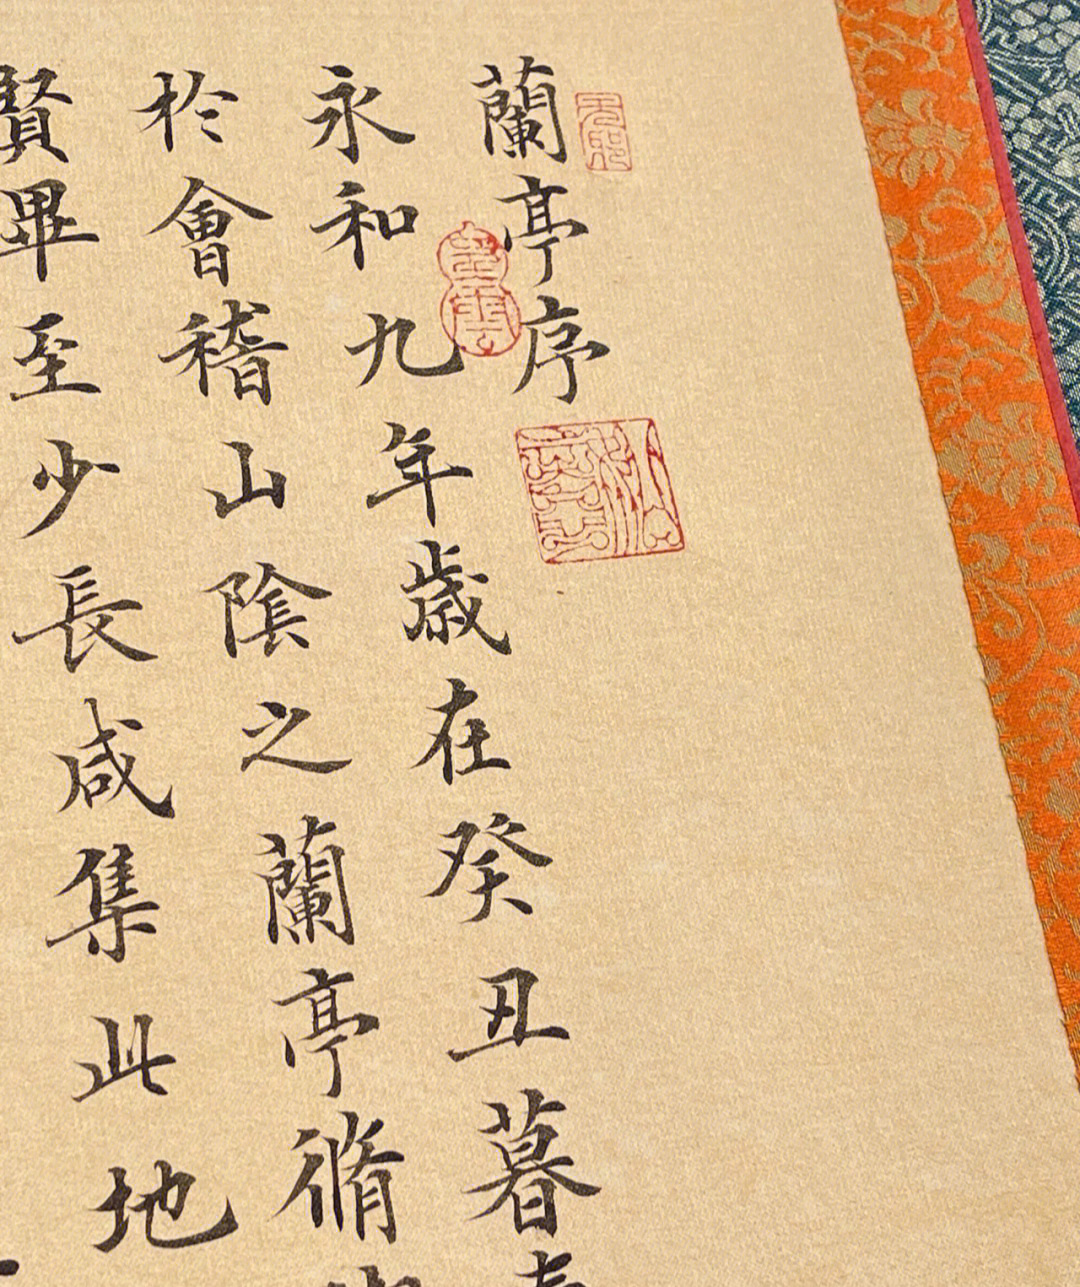 蘭亭序
永和九年歲在癸丑暮
於會稽山陰之蘭亭脩
賢畢至少長咸集此地